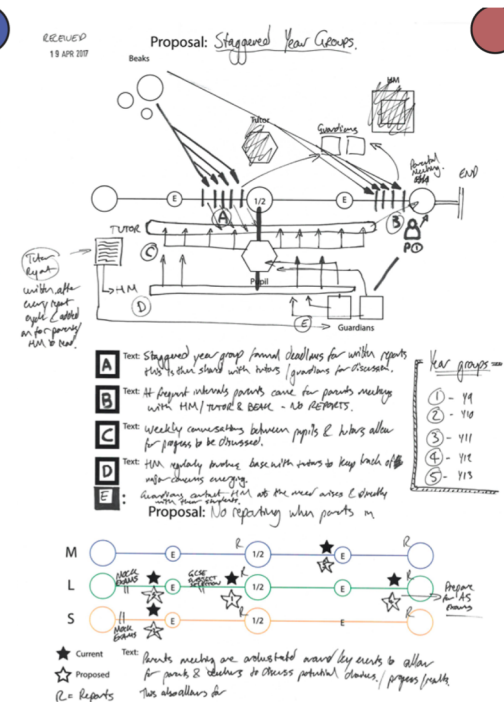 RECEIVED
19 APR 2017
Proposal: Staggered Year Groups.
Beaks
HM
Tutor
Guardians
Parental
Meeting.
END
E
1/2
E
A
B
TUTOR
C
P①
Tutor
Report
written after
every report
cycle & added
on for parents/
HM to read.
→HM
Pupil
D
E
Guardians
A Text: Staggered year group formal deadlines for written reports
this is then share with tutors/guardians for discussion.
B Text: At frequent intervals parents come for parents meeting
with HM/TUTOR & BEAK - NO REPORTS.
C Text: Weekly conversations between pupils & tutors allow
for progress to be discussed.
D Text: HM regularly touches base with tutors to keep track of
major concerns emerging.
E : Guardians contact HM as the need arises & directly
with their students.
Year groups
① - Y9
② - Y10
③ - Y11
④ - Y12
⑤ - Y13
Proposal: No reporting when parents m
M E R 1/2 E R
L MOCK EXAMS E GCSE SUBJECT SELECTION R 1/2 E R
Prepare
for AS
exams
S MOCK EXAMS E R 1/2 E R
★ Current
☆ Proposed
R = Reports
Text: Parents meeting are orchestrated around key events to allow
for parents & teachers to discuss potential choices/progress/
This also allows for